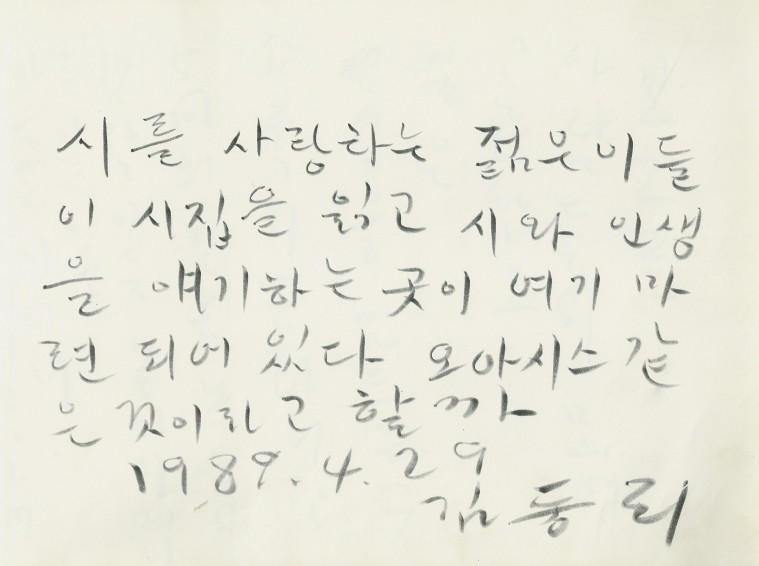 시를 사랑하는 젊은이들
이 시집을 읽고 시와 인생
을 얘기하는 곳이 여기 마
련 되어 있다 오아시스 같
은 것이라고 할까
1989. 4. 29
김동리